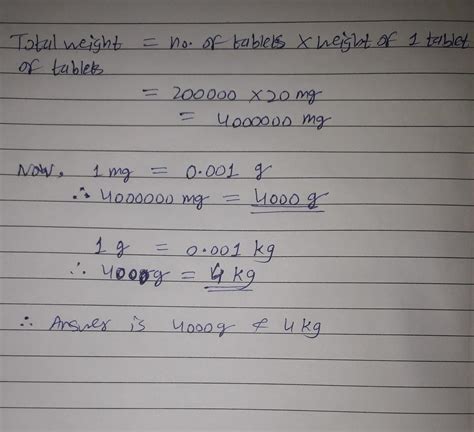 Total weight = no. of tablets × weight of 1 tablet
of tablets
= 200000 × 20 mg
= 4000000 mg
Now, 1 mg = 0.001 g
∴ 4000000 mg = 4000 g
1 g = 0.001 kg
∴ 4000g = 4 kg
∴ Answer is 4000g & 4 kg